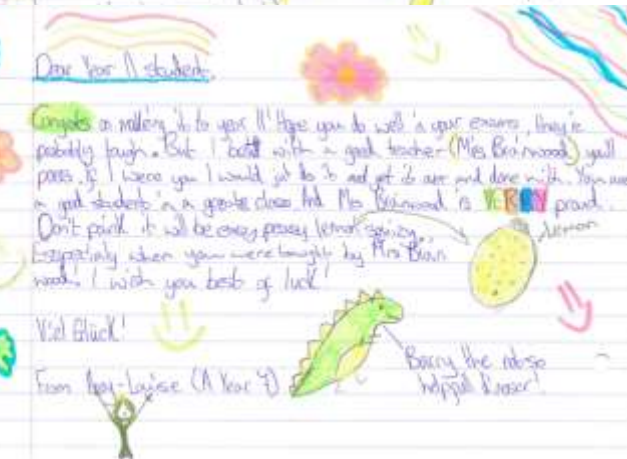 Dear Year 11 students,
Congrats on making it to year 11! Hope you do well in your exams, they're
probably tough. But I bet with a good teacher (Mrs Brainwood) you'll
pass. If I were you I would just do it and get it over and done with. You are
a good student in a greate class. And Mrs Brainwood is VERRY proud.
Don't panik it will be easy peasy lemon
lemon
Esspecialy when you were taught by Mrs Brain
wood! I wish you best of luck!
Viel Glück!
From -Louise (A Year 7)
Barry the not so
helpfull